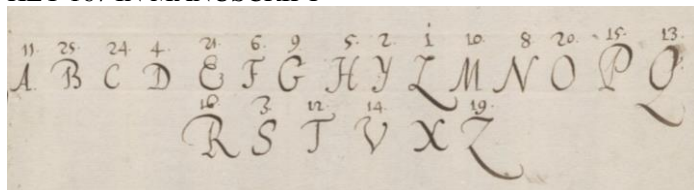 11 25 24 4 21 6 9 5 2 1 10 8 20 15 13
A B C D E F G H Y L M N O P Q
3 12 14 19
R S T V X Z